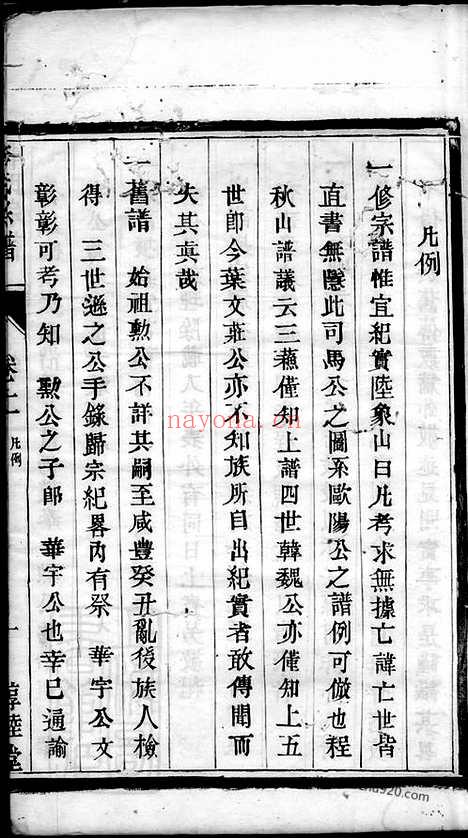 凡例
一修宗譜惟宜紀實陸象山曰凡考求無據亡諱亡世皆
直書無隱此司馬公之圖系歐陽公之譜例可倣也程
秋山譜議云三蘇僅知上譜四世韓魏公亦僅知上五
世即今葉文莊公亦不知族所自出紀實者敢傳聞而
失其真哉
一舊譜 始祖勲公不詳其嗣至咸豐癸丑亂後族人檢
得 三世遜之公手錄歸宗紀畧內有祭 華宇公文
彰彰可考乃知 勲公之子郎 華宇公也幸已通諭
氏宗譜
卷之一 凡例
一
惇睦堂
nayona.cn
920.com